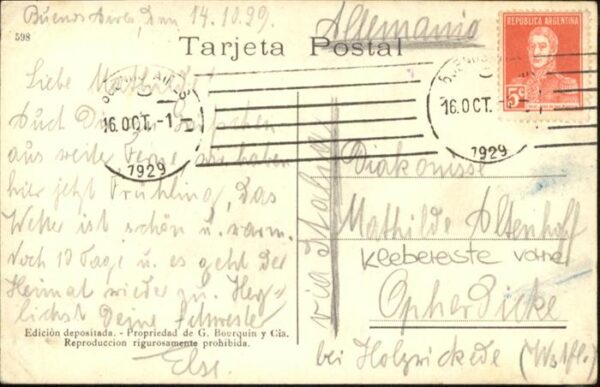 Buenos Aires, den 14.10.29.
598
Allemania
REPUBLICA ARGENTINA
5c
Tarjeta Postal
BUENOS AIRES
16.OCT.-1
1929
BUENOS
16.OCT.
1929
Liebe Mathilde!
Auch Du ein Grüßchen
aus weiter Ferne. Wir haben
hier jetzt Frühling, das
Wetter ist schön u. warm.
Noch 10 Tage u. es geht der
Heimat wieder zu. Herz-
lichst Deine Schwester
Else.
via Italia
Diakonisse
Mathilde Altenhoff
Klebereste
Opherdicke
bei Holzwickede (Wstfl.)
Edición depositada. - Propriedad de G. Bourquin y Cia.
Reproduccion rigurosamente prohibida.